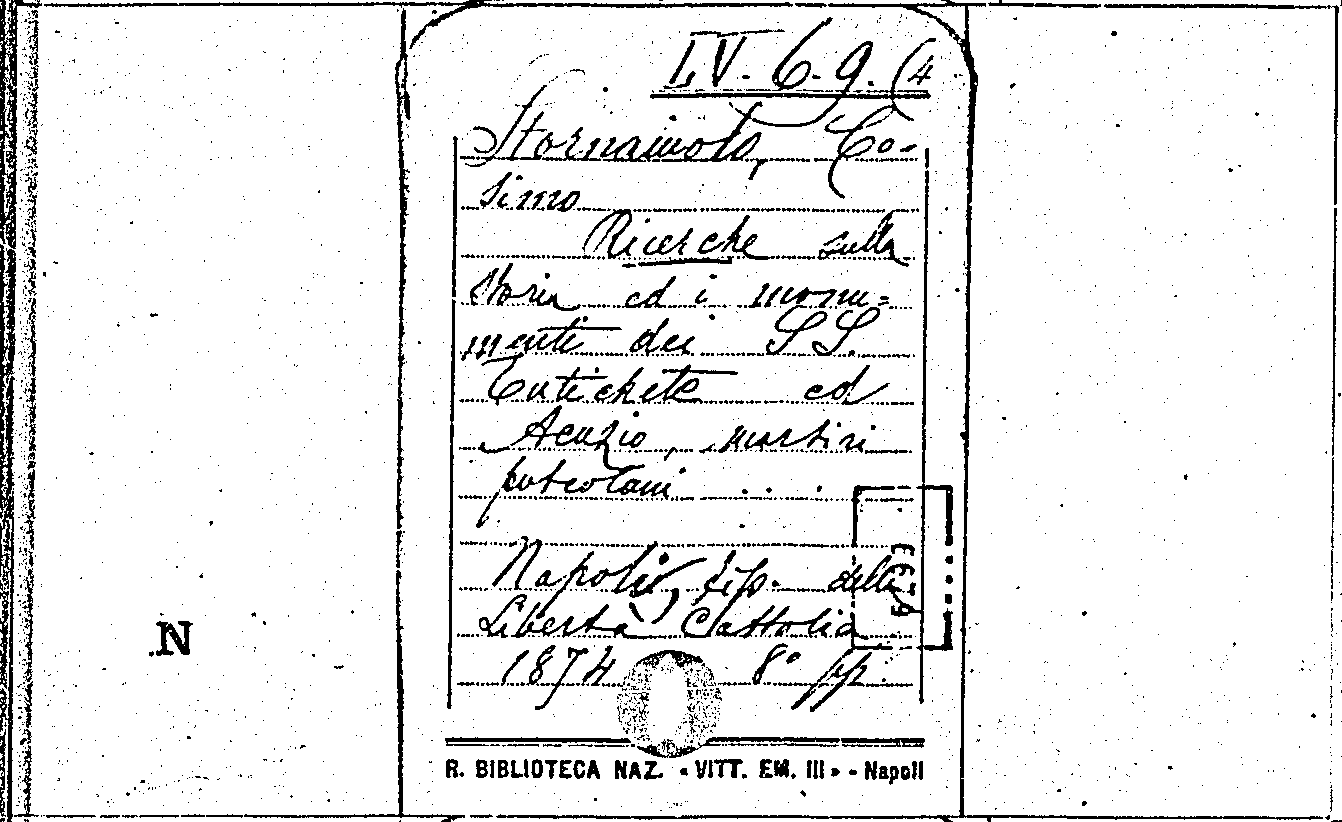 L V. 6. 9. (4
Stornaiuolo, Co-
simo
Ricerche sulla
Storia ed i monu=
menti dei SS.
Eutichete ed
Acuzio, martiri
puteolani . . . .
Napoli, tip. della
Libertà Cattolica
1874 8° pp.
N
R. BIBLIOTECA NAZ. « VITT. EM. III » - Napoli